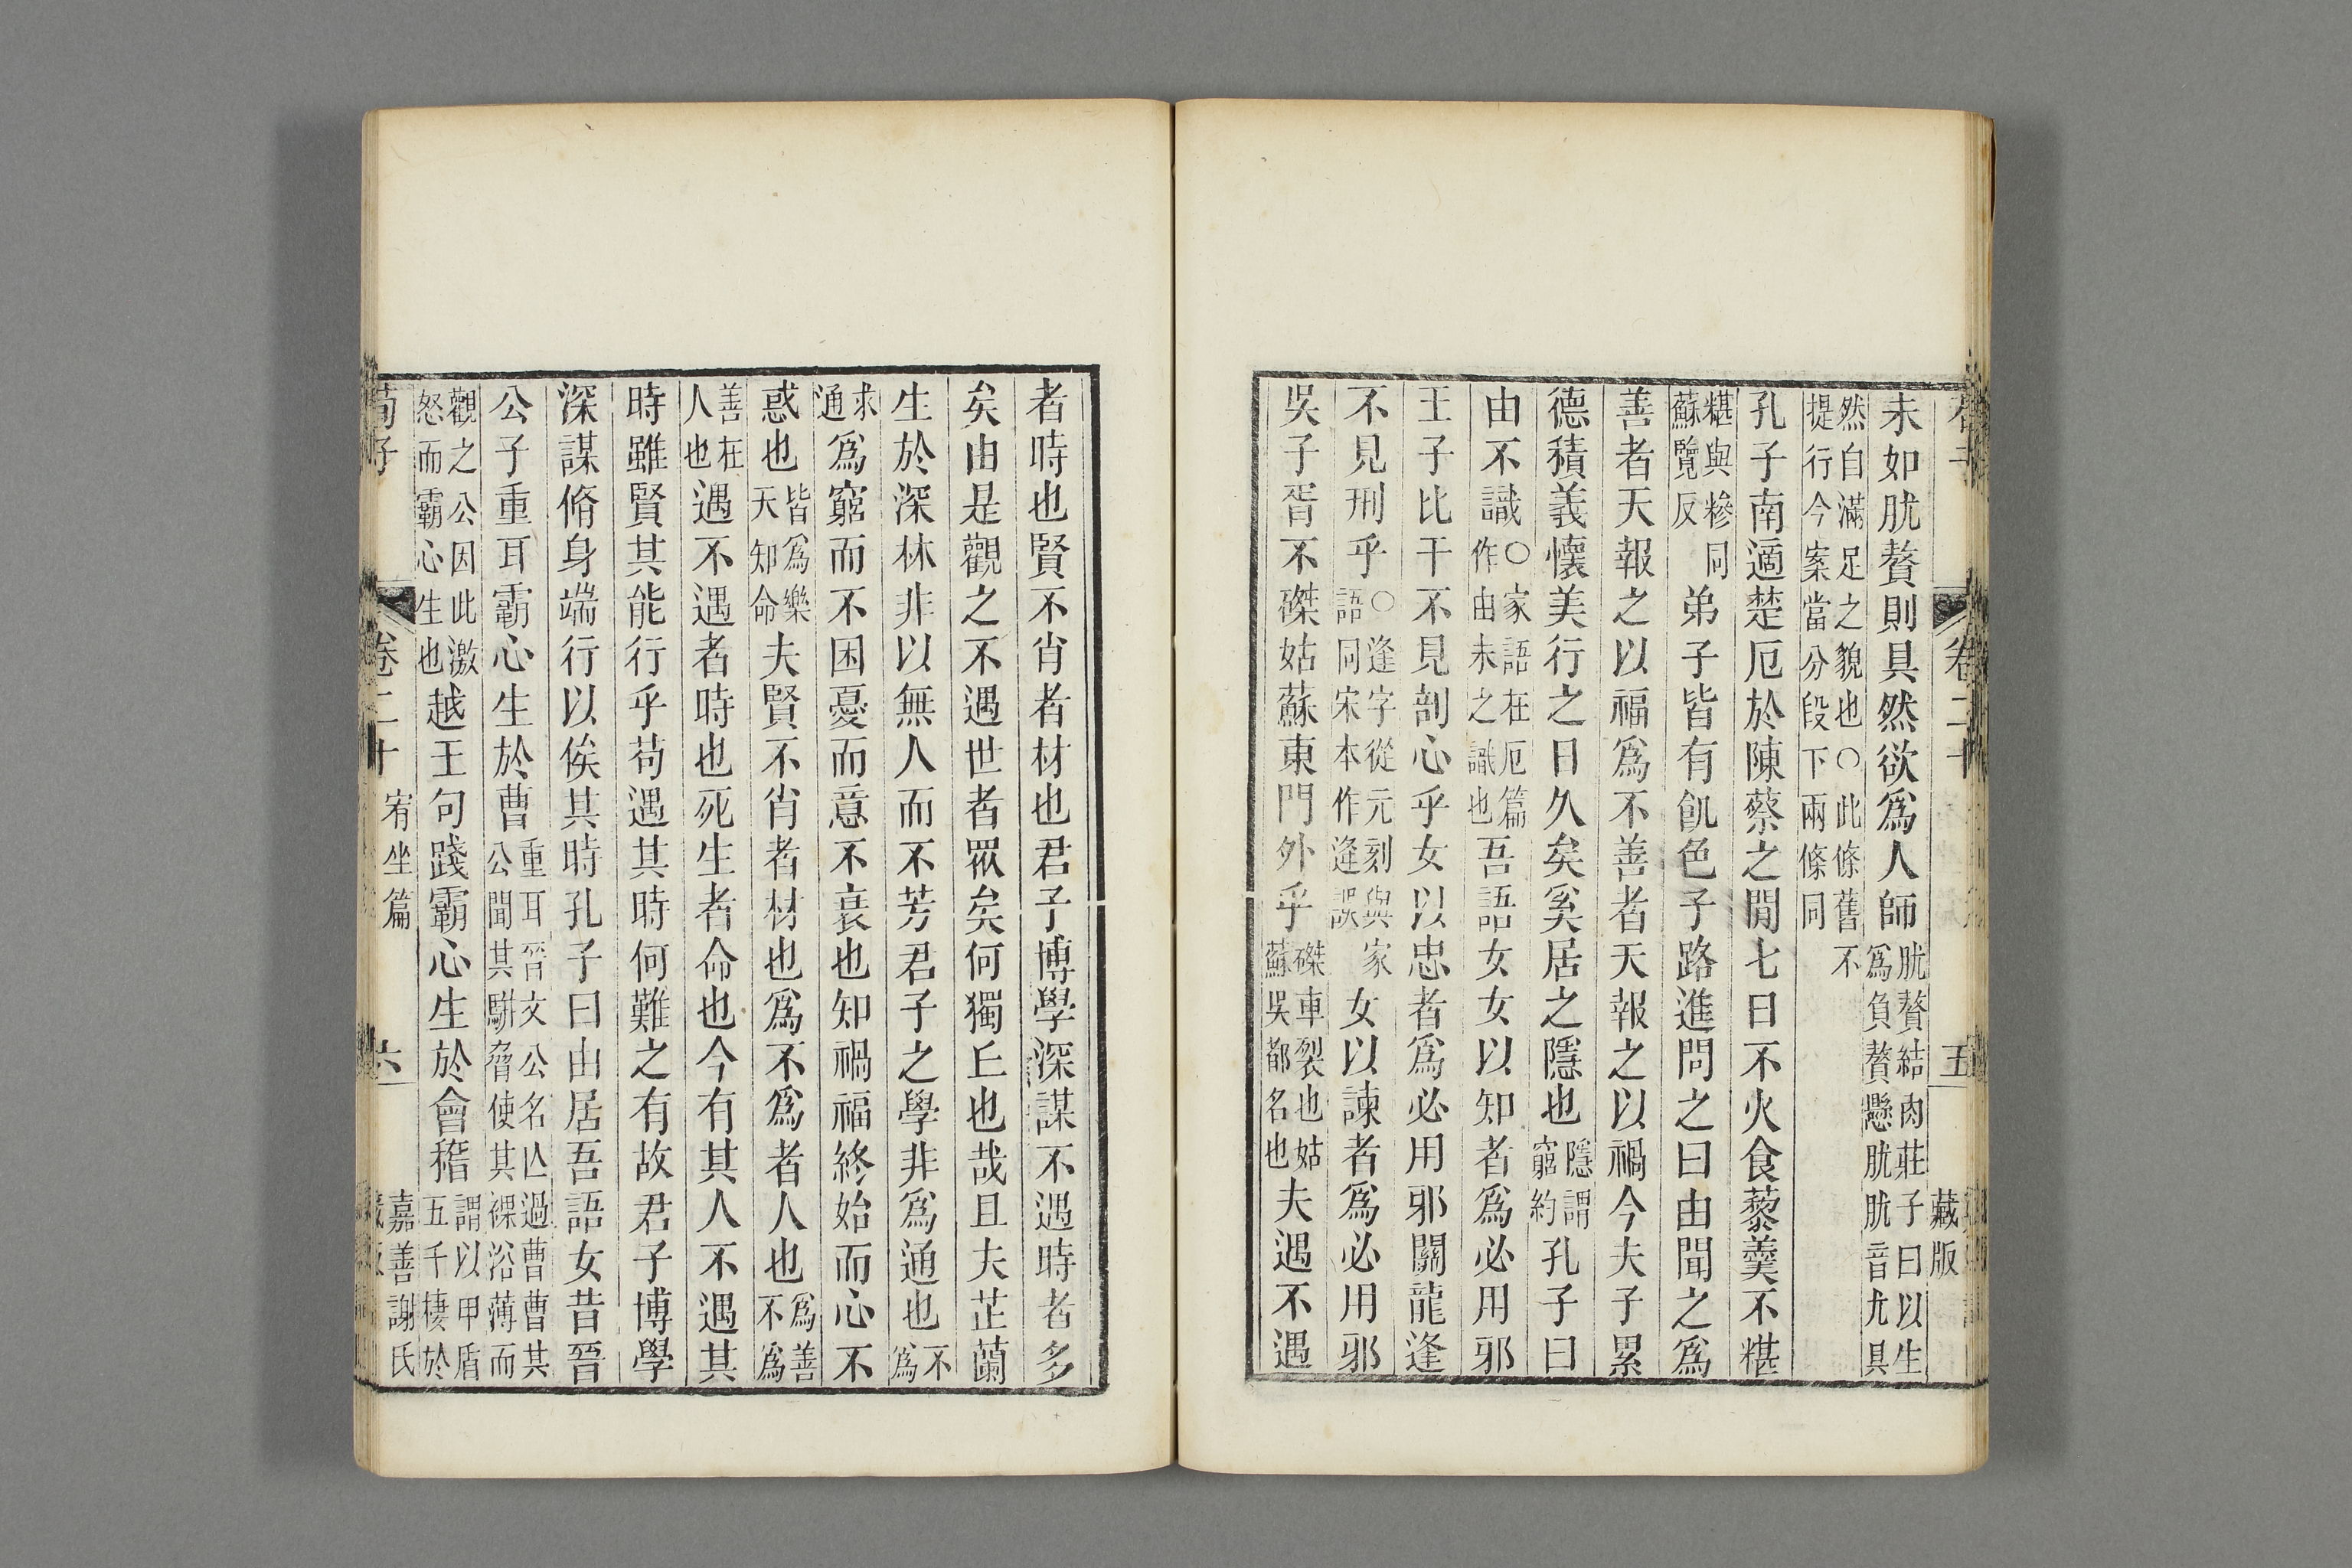 未如肬贅則具然欲爲人師肬贅結肉莊子曰以生爲負贅懸肬肬音尤具
然自滿足之貌也○此條舊不提行今案當分段下兩條同
孔子南適楚厄於陳蔡之閒七日不火食藜羹不糂
糂與糝同蘇覽反弟子皆有飢色子路進問之曰由聞之爲
善者天報之以福爲不善者天報之以禍今夫子累
德積義懷美行之日久矣奚居之隱也隱謂窮約孔子曰
由不識○家語在厄篇作由未之識也吾語女女以知者爲必用邪
王子比干不見剖心乎女以忠者爲必用邪關龍逢
不見刑乎○逢字從元刻與家語同宋本作逄誤女以諫者爲必用邪
吳子胥不磔姑蘇東門外乎磔車裂也姑蘇吳都名也夫遇不遇
卷二十
五
藏版
者時也賢不肖者材也君子博學深謀不遇時者多
矣由是觀之不遇世者眾矣何獨丘也哉且夫芷蘭
生於深林非以無人而不芳君子之學非爲通也不爲
求通爲窮而不困憂而意不衰也知禍福終始而心不
惑也皆爲樂天知命夫賢不肖者材也爲不爲者人也爲善不爲
善在人也遇不遇者時也死生者命也今有其人不遇其
時雖賢其能行乎苟遇其時何難之有故君子博學
深謀脩身端行以俟其時孔子曰由居吾語女昔晉
公子重耳霸心生於曹重耳晉文公名亾過曹曹其公聞其駢脅使其裸浴薄而
觀之公因此激怒而霸心生也越王句踐霸心生於會稽謂以甲盾五千棲於
荀子
卷二十
宥坐篇
六
嘉善謝氏
藏版